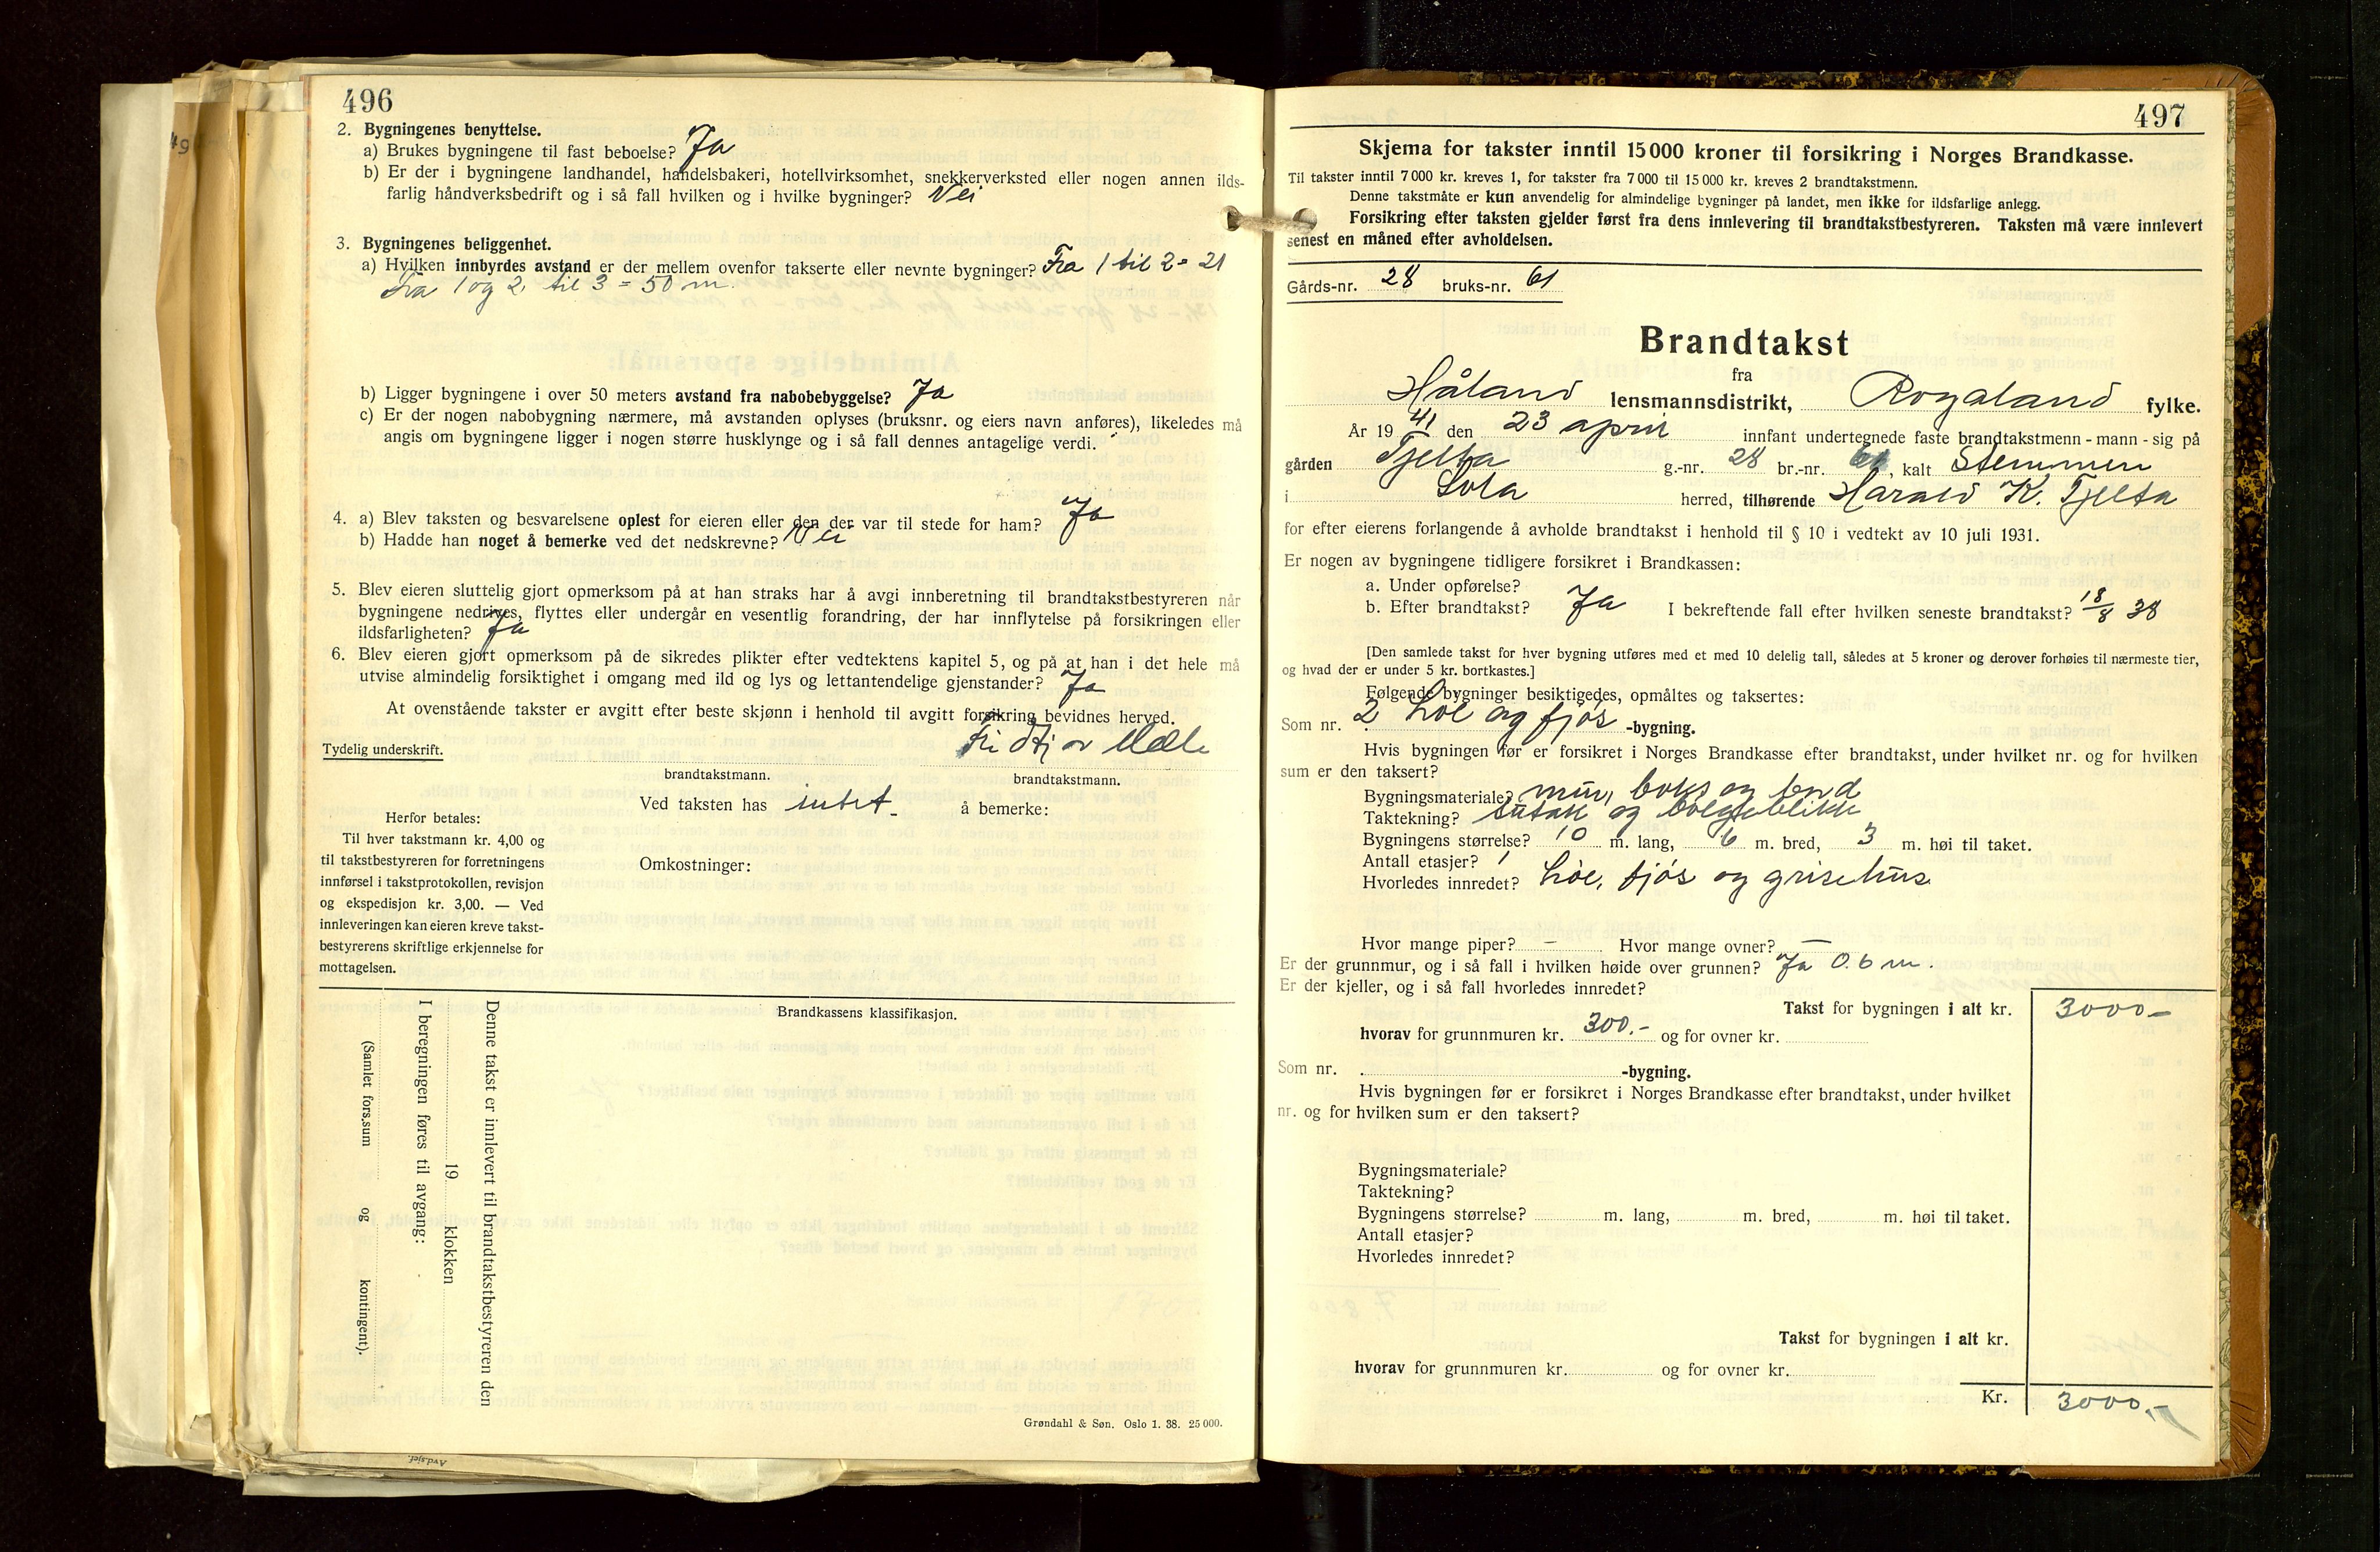 496
2. Bygningenes benyttelse.
a) Brukes bygningene til fast beboelse? Ja
b) Er der i bygningene landhandel, handelsbakeri, hotellvirksomhet, snekkerverksted eller nogen annen ilds-
farlig håndverksbedrift og i så fall hvilken og i hvilke bygninger? Nei
3. Bygningenes beliggenhet.
a) Hvilken innbyrdes avstand er der mellem ovenfor takserte eller nevnte bygninger? Fra 1 til 2 = 21
Fra 1 og 2 til 3 = 50 m.
b) Ligger bygningene i over 50 meters avstand fra nabobebyggelse? Ja
c) Er der nogen nabobygning nærmere, må avstanden oplyses (bruksnr. og eiers navn anføres), likeledes må
angis om bygningene ligger i nogen større husklynge og i så fall dennes antagelige verdi.
4. a) Blev taksten og besvarelsene oplest for eieren eller den der var til stede for ham? Ja
b) Hadde han noget å bemerke ved det nedskrevne? Nei
5. Blev eieren sluttelig gjort opmerksom på at han straks har å avgi innberetning til brandtakstbestyreren når
bygningene nedrives, flyttes eller undergår en vesentlig forandring, der har innflytelse på forsikringen eller
ildsfarligheten? Ja
6. Blev eieren gjort opmerksom på de sikredes plikter efter vedtektens kapitel 5, og på at han i det hele må
utvise almindelig forsiktighet i omgang med ild og lys og lettantendelige gjenstander? Ja
At ovenstående takster er avgitt efter beste skjønn i henhold til avgitt forsikring bevidnes herved.
Tydelig underskrift. Fridtjov Mæle
brandtakstmann. brandtakstmann.
Ved taksten has intet - å bemerke:
Herfor betales:
Til hver takstmann kr. 4,00 og
til takstbestyreren for forretningens
innførsel i takstprotokollen, revisjon
og ekspedisjon kr. 3,00. — Ved
innleveringen kan eieren kreve takst-
bestyrerens skriftlige erkjennelse for
mottagelsen.
Omkostninger:
Brandkassens klassifikasjon.
Denne takst er innlevert til brandtakstbestyreren den
19 klokken
I beregningen føres til avgang:
(Samlet fors.sum og kontingent).
Grøndahl & Søn. Oslo 1. 38. 25 000.
Avd.sjef.
497
Skjema for takster inntil 15000 kroner til forsikring i Norges Brandkasse.
Til takster inntil 7 000 kr. kreves 1, for takster fra 7 000 til 15 000 kr. kreves 2 brandtakstmenn.
Denne takstmåte er kun anvendelig for almindelige bygninger på landet, men ikke for ildsfarlige anlegg.
Forsikring efter taksten gjelder først fra dens innlevering til brandtakstbestyreren. Taksten må være innlevert
senest en måned efter avholdelsen.
Gårds-nr. 28 bruks-nr. 61
Brandtakst
fra
Håland lensmannsdistrikt, Rogaland fylke.
År 19 41 den 23 april innfant undertegnede faste brandtakstmenn - mann - sig på
gården Tjelta g.-nr. 28 br.-nr. 61, kalt Stemmen
i Sola herred, tilhørende Harald K. Tjelta
for efter eierens forlangende å avholde brandtakst i henhold til § 10 i vedtekt av 10 juli 1931.
Er nogen av bygningene tidligere forsikret i Brandkassen:
a. Under opførelse?
b. Efter brandtakst? Ja I bekreftende fall efter hvilken seneste brandtakst? 18/8 38
[Den samlede takst for hver bygning utføres med et med 10 delelig tall, således at 5 kroner og derover forhøies til nærmeste tier,
og hvad der er under 5 kr. bortkastes.]
Følgende bygninger besiktigedes, opmåltes og taksertes:
Som nr. 2 Løe og fjøs -bygning.
Hvis bygningen før er forsikret i Norges Brandkasse efter brandtakst, under hvilket nr. og for hvilken
sum er den taksert?
Bygningsmateriale? mur, boks og bord
Taktekning? sutak og bølgeblikk
Bygningens størrelse? 10 m. lang, 6 m. bred, 3 m. høi til taket.
Antall etasjer? 1
Hvorledes innredet? Løe, fjøs og grisehus
Hvor mange piper? — Hvor mange ovner? —
Er der grunnmur, og i så fall i hvilken høide over grunnen? Ja 0.6 m.
Er der kjeller, og i så fall hvorledes innredet?
Takst for bygningen i alt kr. 3000-
hvorav for grunnmuren kr. 300.- og for ovner kr.
Som nr. -bygning.
Hvis bygningen før er forsikret i Norges Brandkasse efter brandtakst, under hvilket
nr. og for hvilken sum er den taksert?
Bygningsmateriale?
Taktekning?
Bygningens størrelse? m. lang, m. bred, m. høi til taket.
Antall etasjer?
Hvorledes innredet?
Takst for bygningen i alt kr.
hvorav for grunnmuren kr. og for ovner kr.
Kr. 3000.-